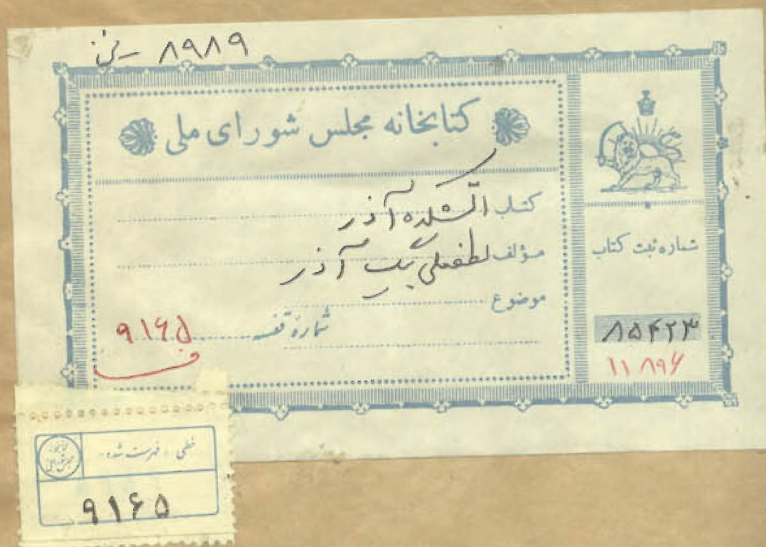 ۸۹۸۹
کتابخانه مجلس شورای ملی
کتاب آتشکده آذر
مؤلف لطفعلی بیک آذر
موضوع
شماره قفسه ۹۱۶۵
شماره ثبت کتاب
۸۵۴۲۳
۱۱۸۹۶
خطی - فهرست شده
۹۱۶۵